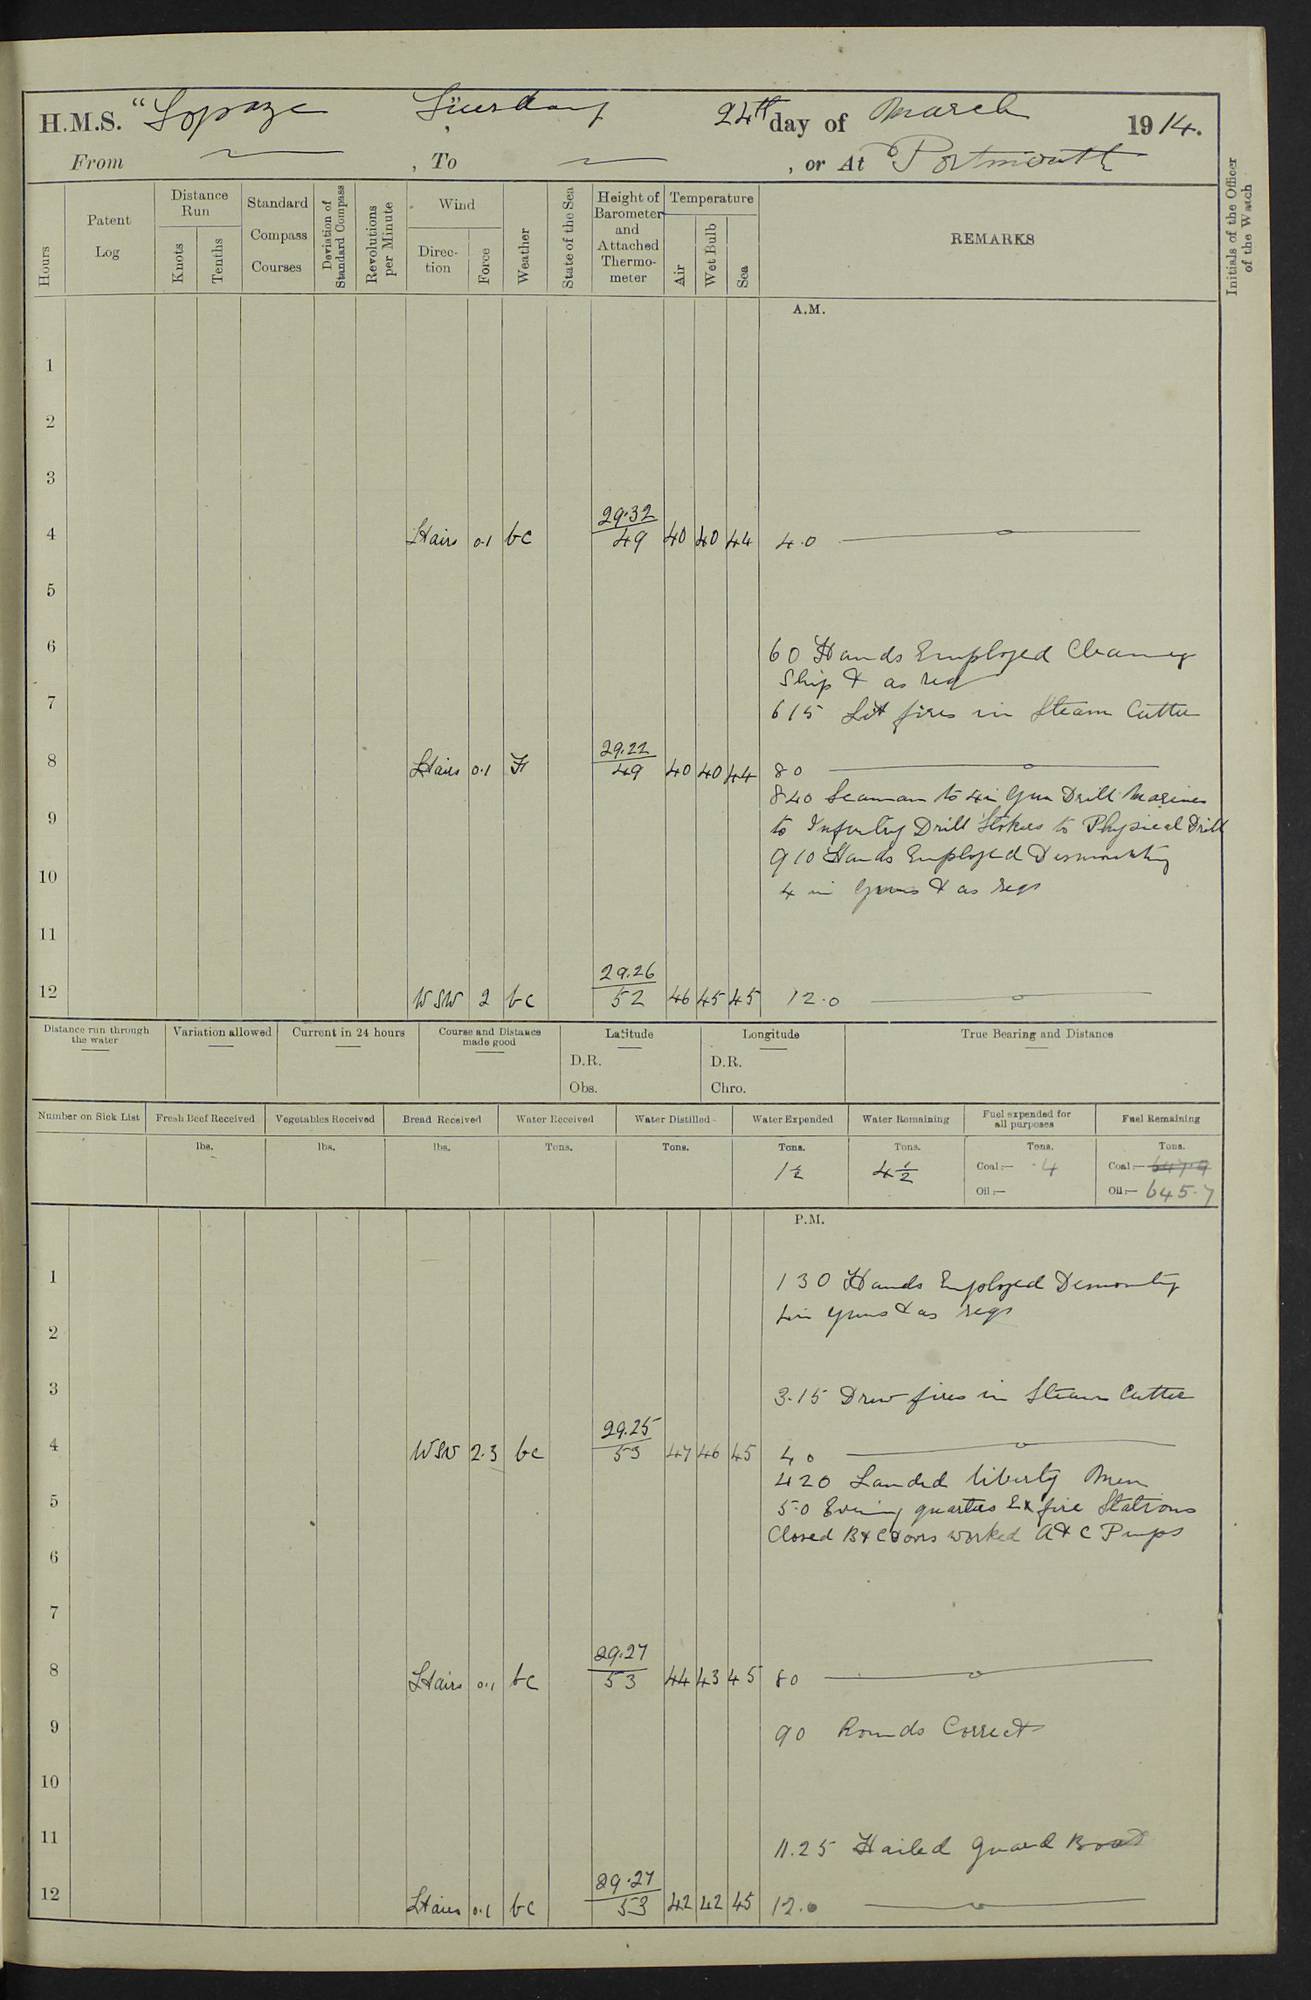 H.M.S. "Topaze Tuesday 24th day of March 1914.
From , To , or At Portsmouth
Hours
Patent Log
Distance Run
Knots
Tenths
Standard Compass Courses
Deviation of Standard Compass
Revolutions per Minute
Wind
Direc-tion
Force
Weather
State of the Sea
Height of Barometer and Attached Thermo-meter
Temperature
Air
Wet Bulb
Sea
REMARKS
Initials of the Officer of the Watch
A.M.
1
2
3
4 Lt airs 0.1 bc 29.32 / 49 40 40 44 4.0
5
6 6 0 Hands Employed Cleaning
Ship & as req
7 6 15 Lit fires in Steam Cutter
8 Lt airs 0.1 29.22 / 49 40 40 44 8 0
8 40 Seaman to 4 in Gun Drill Marines
9 to Infantry Drill Stokers to Physical Drill
9 10 Hands Employed Dismounting
10 4 in Guns & as reqs
11
12 WSW 2 bc 29.26 / 52 46 45 45 12.0
Distance run through the water
Variation allowed
Current in 24 hours
Course and Distance made good
Latitude
D.R.
Obs.
Longitude
D.R.
Chro.
True Bearing and Distance
Number on Sick List
Fresh Beef Received
Vegetables Received
Bread Received
Water Received
Water Distilled
Water Expended
Water Remaining
Fuel expended for all purposes
Fuel Remaining
lbs. lbs. lbs. Tons. Tons. Tons. Tons. Tons. Tons.
1½ 4½ Coal:— .4 Coal:— 647.9
Oil:— Oil:— 645.7
P.M.
1 1 30 Hands Employed Demounting
4 in guns & as reqs
2
3 3.15 Drew fires in Steam Cutter
4 WSW 2.3 bc 29.25 / 53 47 46 45 4 0
4 20 Landed liberty Men
5 5.0 Evening quarters Ex fire Stations
Closed B & C Doors worked A & C Pumps
6
7
8 Lt airs 0.1 bc 29.27 / 53 44 43 45 8 0
9 9 0 Rounds Correct
10
11 11.25 Hailed Guard Boat
12 Lt airs 0.1 bc 29.27 / 53 42 42 45 12.0